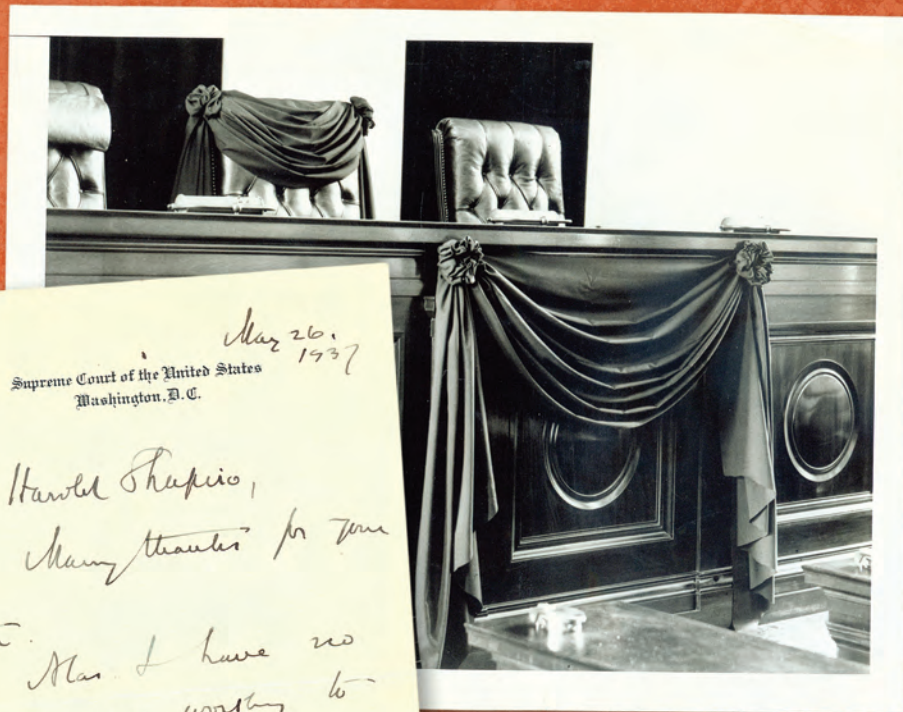 May 26.
1937
Supreme Court of the United States
Washington, D.C.
Harold Shapiro,
Many thanks for your
Alas I have no
worthy to